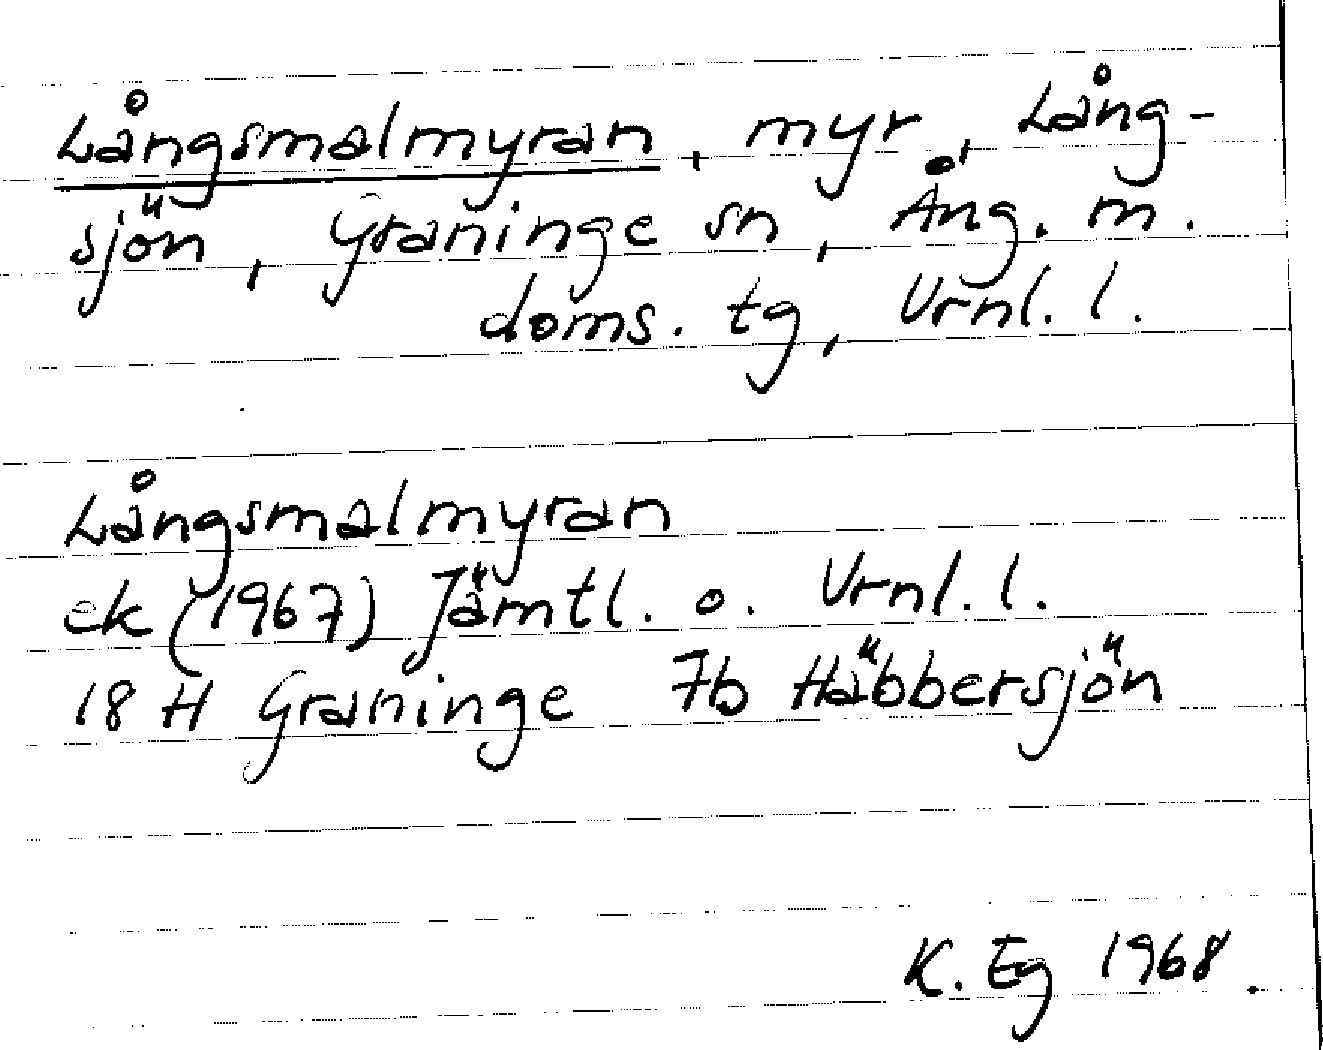 Långsmalmyran, myr, Lång-
sjön, Graninge sn, Ång. m.
doms. tg, Vrnl. l.
Långsmalmyran
ek (1967) Jämtl. o. Vrnl. l.
18 H Graninge 7b Häbbersjön
K. Eg 1968.